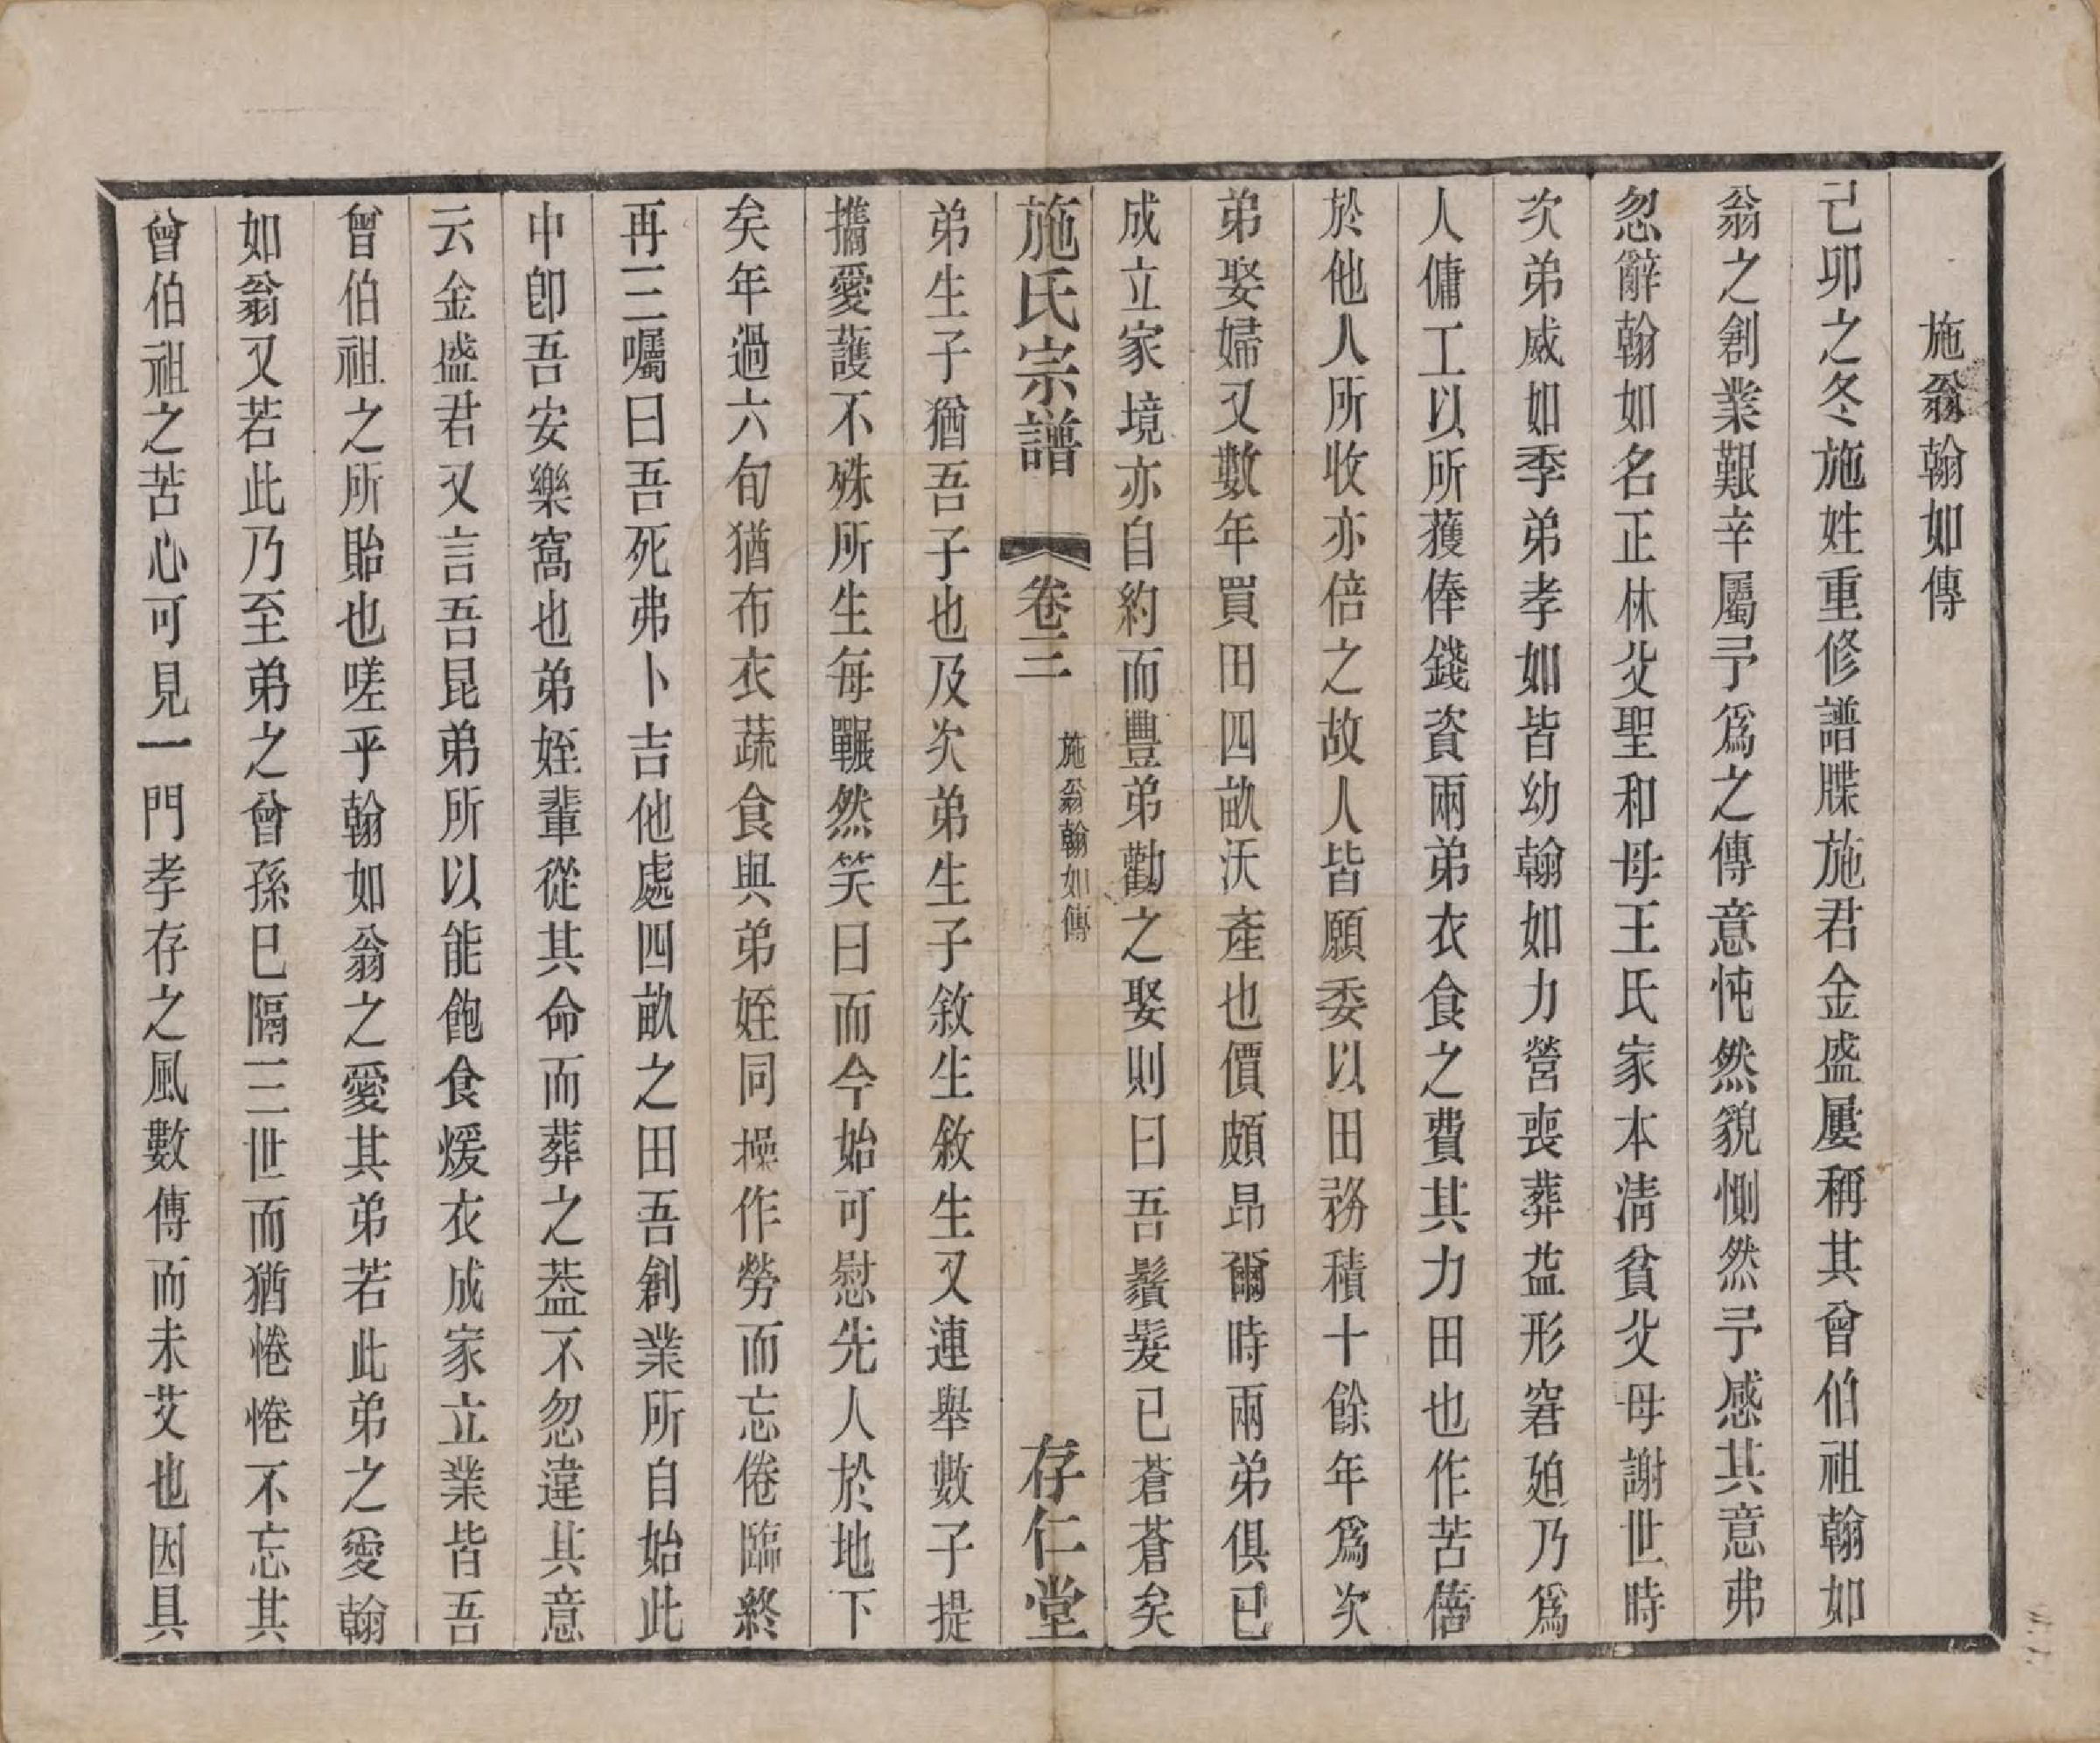 施翁翰如傳
己卯之冬施姓重修譜牒施君金盛屢稱其曾伯祖翰如
翁之創業艱辛屬予爲之傳意忳然貌惻然予感其意弗
忽辭翰如名正林父聖和母王氏家本淸貧父母謝世時
次弟威如季弟孝如皆幼翰如力營喪葬葢形窘廹乃爲
人傭工以所獲俸錢資兩弟衣食之費其力田也作苦倍
於他人所收亦倍之故人皆願委以田務積十餘年爲次
弟娶婦又數年買田四畝沃產也價頗昂爾時兩弟俱已
成立家境亦自約而豐弟勸之娶則曰吾鬚髮已蒼蒼矣
施氏宗譜 卷三 施翁翰如傳 存仁堂
弟生子猶吾子也及次弟生子敘生敘生又連舉數子提
攜愛護不殊所生每囅然笑曰而今始可慰先人於地下
矣年過六旬猶布衣蔬食與弟姪同操作勞而忘倦臨終
再三囑曰吾死弗卜吉他處四畝之田吾創業所自始此
中卽吾安樂窩也弟姪輩從其命而葬之葢不忽違其意
云金盛君又言吾昆弟所以能飽食煖衣成家立業皆吾
曾伯祖之所貽也嗟乎翰如翁之愛其弟若此弟之愛翰
如翁又若此乃至弟之曾孫已隔三世而猶惓惓不忘其
曾伯祖之苦心可見一門孝存之風數傳而未艾也因具